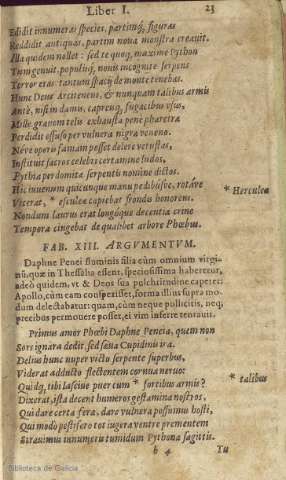 Liber I. 23
Edidit innumeras species, partimq́; figuras
Reddidit antiquas, partim noua monstra creauit.
Illa quidem nollet: sed te quoq, maxime Python
Tum genuit, populisq́, nouis incognite serpens
Terror eras: tantum spacij de monte tenebas.
Hunc Deus Arcitenens, & nunquam talibus armis
Antè, nisi in damis, capreisq, fugacibus vsus,
Mille grauem telis exhausta penè pharetra
Perdidit effuso per vulnera nigra veneno.
Néve operis famam posset delere vetustas,
Instituit sacros celebri certamine ludos,
Pythia perdomitæ serpentis nomine dictos.
Hic iuuenum quicunque manu pedibúsve, rotáve
* Herculea
Vicerat, * esculeæ capiebat frondis honorem.
Nondum laurus erat longóque decentia crine
Tempora cingebat de qualibet arbore Phœbus.
FAB. XIII. ARGVMENTVM.
Daphne Penei fluminis filia cùm omnium virgi-
nū, quæ in Thessalia essent, speciosissima haberetur,
adeò quidem, vt & Deos sua pulchritudine caperet:
Apollo, cùm eam conspexisset, forma illius supra mo-
dum delectabatur: quam, cùm neque pollicitis, neq;
precibus permouere posset, ei vim inferre tentauit.
Primus amor Phœbi Daphne Peneia, quem non
Sors ignara dedit, sed sæua Cupidinis ira.
Delius hunc nuper victo serpente superbus,
Viderat adducto flectentem cornua neruo:
* talibus
Quidq, tibi lasciue puer cum * fortibus armis?
Dixerat, ista decent humeros gestamina nostros,
Qui dare certa feræ, dare vulnera possumus hosti,
Qui modo pestifero tot iugera ventre prementem
Strauimus innumeris tumidum Pythona sagittis.
b 4 Tu
Biblioteca de Galicia